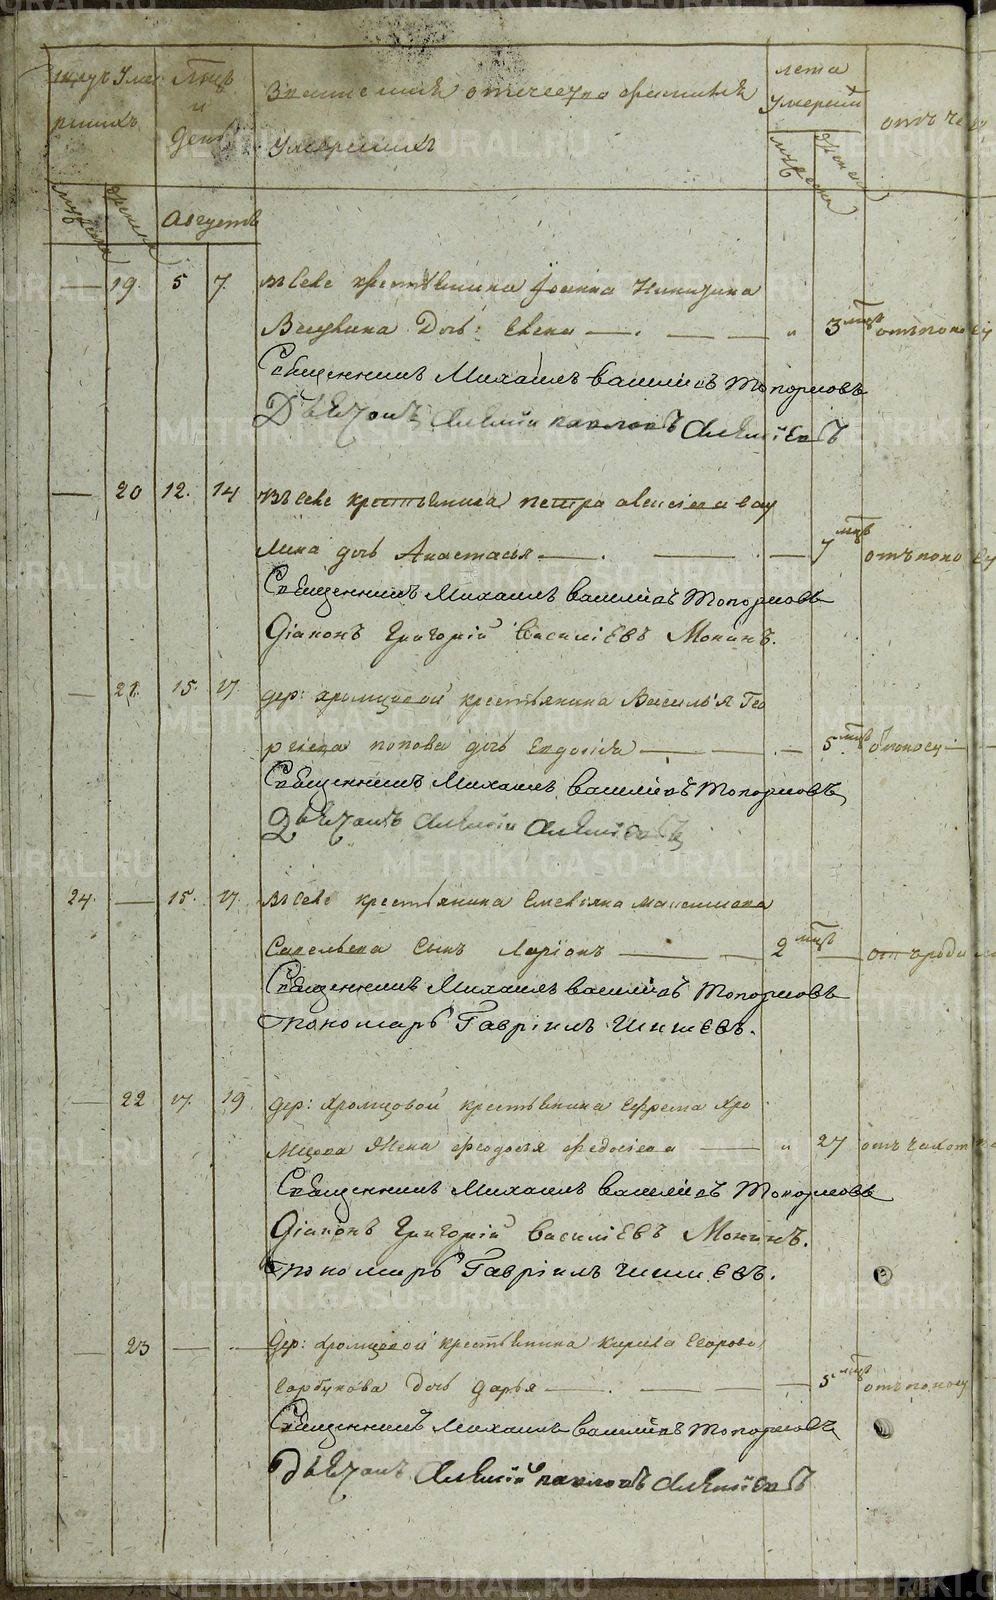 умер
рших
Мѣсяцъ
и
День
Званіе имя отчество фамилія
Умершихъ
лета
Умерший
отъ чего
мужеска
женска
мужеска
женска
Августъ
19. 5 7. въ селе крестьянина Иоанна Никитина
дочь: Елена 3 мцъ отъ поносу
Священникъ Михаилъ Василіевъ Топорковъ
Дьячокъ Алексій Павловъ Алексіевъ
20 12. 14 въ селе крестьянина Петра Алексіева
дочь Анастасья 7 мцъ отъ поносу
Священникъ Михаилъ Василіевъ Топорковъ
Діаконъ Григорій Василіевъ Мокинъ.
21. 15. 17. дер: Хромцовой крестьянина Василья Гео
ргіева Попова дочь Евдокія 5 мцъ отъ поносу
Священникъ Михаилъ Василіевъ Топорковъ
Дьячокъ Алексій Алексіевъ
24. 15. 17. въ селе крестьянина Емельяна Максимова
Савельева сынъ Ларіонъ 2 мцъ отъ роди
Священникъ Михаилъ Василіевъ Топорковъ
Пономарь Гавріилъ Шишевъ.
22 17. 19 дер: Хромцовой крестьянина Ефрема Хро
мцова жена Феодосья Федосіева 27 отъ чахот
Священникъ Михаилъ Василіевъ Топорковъ
Діаконъ Григорій Василіевъ Мокинъ.
Пономарь Гавріилъ Шишевъ.
23 дер: Хромцовой крестьянина Кирила Егорова
Горбунова дочь Дарья 5 мцъ отъ поносу
Священникъ Михаилъ Василіевъ Топорковъ
Дьячокъ Алексій Павловъ Алексіевъ
METRIKI.GASO-URAL.RU